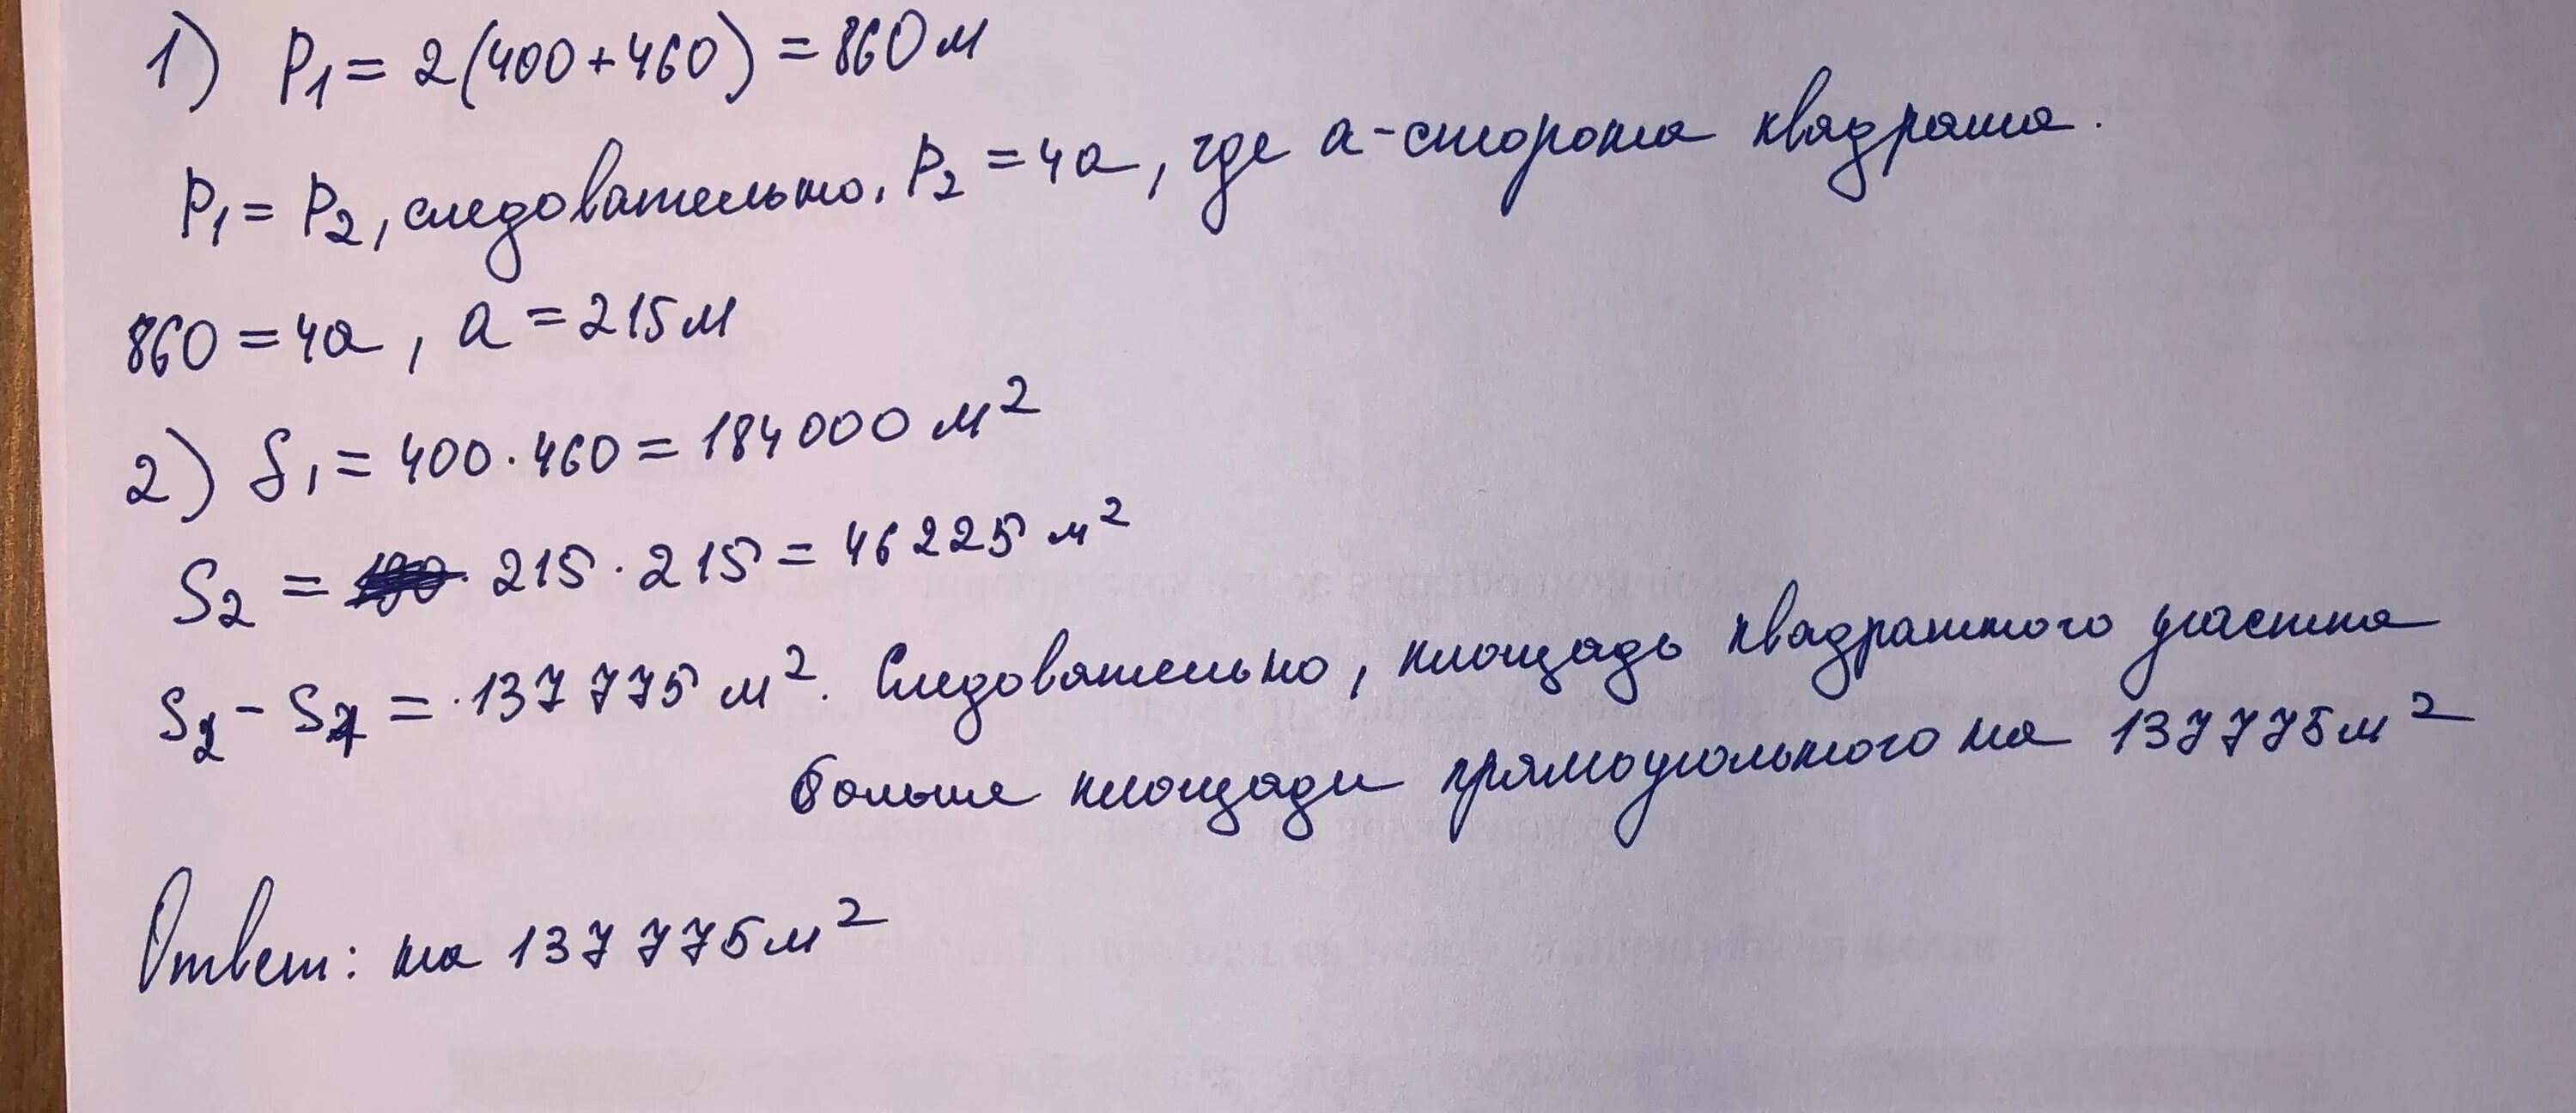 1) P₁ = 2(400+460) = 860 м
P₁ = P₂, следовательно, P₂ = 4a, где a - сторона квадрата.
860 = 4a, a = 215 м
2) S₁ = 400 · 460 = 184000 м²
S₂ = 215 · 215 = 46225 м²
S₁ - S₂ = 137 775 м². Следовательно, площадь квадратного участка
больше площади прямоугольного на 137 775 м²
Ответ: на 137 775 м²